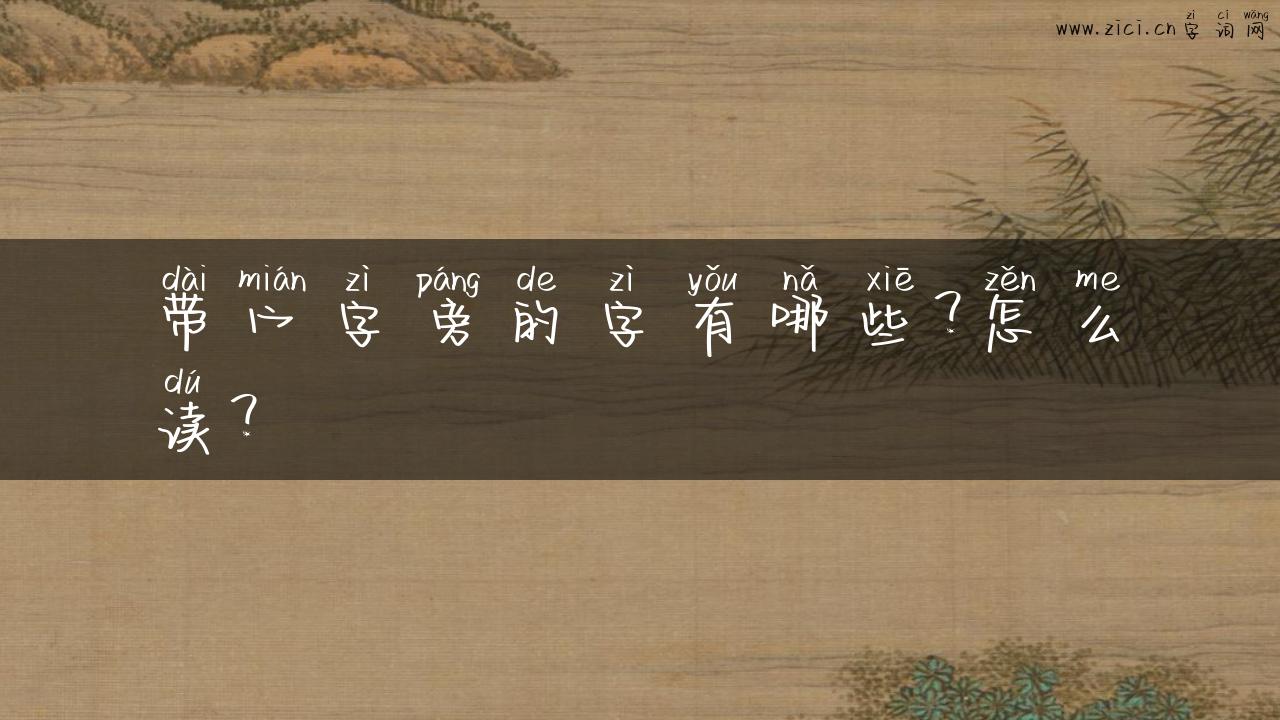 www.zici.cn字词网
zì cí wǎng
dài mián zì páng de zì yǒu nǎ xiē zěn me
带宀字旁的字有哪些?怎么
dú
读?